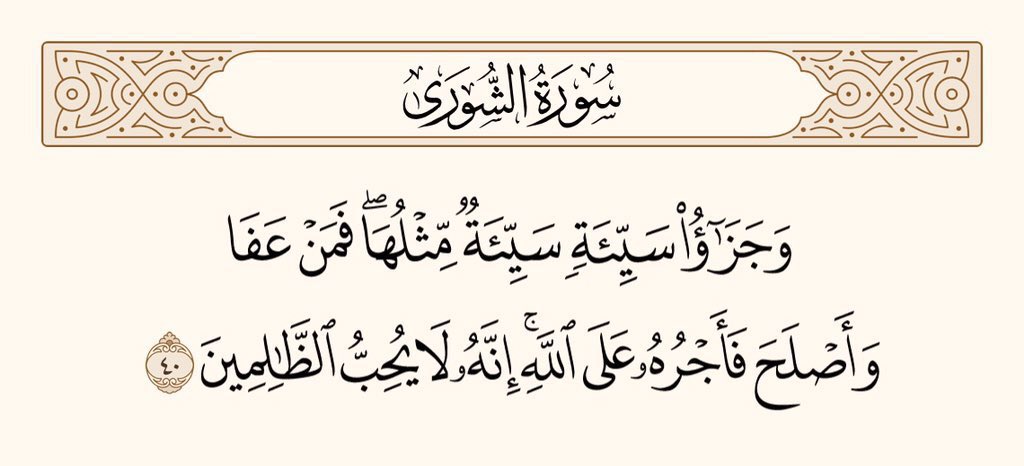 سُورَةُ الشُّورَىٰ
وَجَزَٰٓؤُا۟ سَيِّئَةٍۢ سَيِّئَةٌۭ مِّثْلُهَا ۖ فَمَنْ عَفَا
وَأَصْلَحَ فَأَجْرُهُۥ عَلَى ٱللَّهِ ۚ إِنَّهُۥ لَا يُحِبُّ ٱلظَّٰلِمِينَ ٤٠